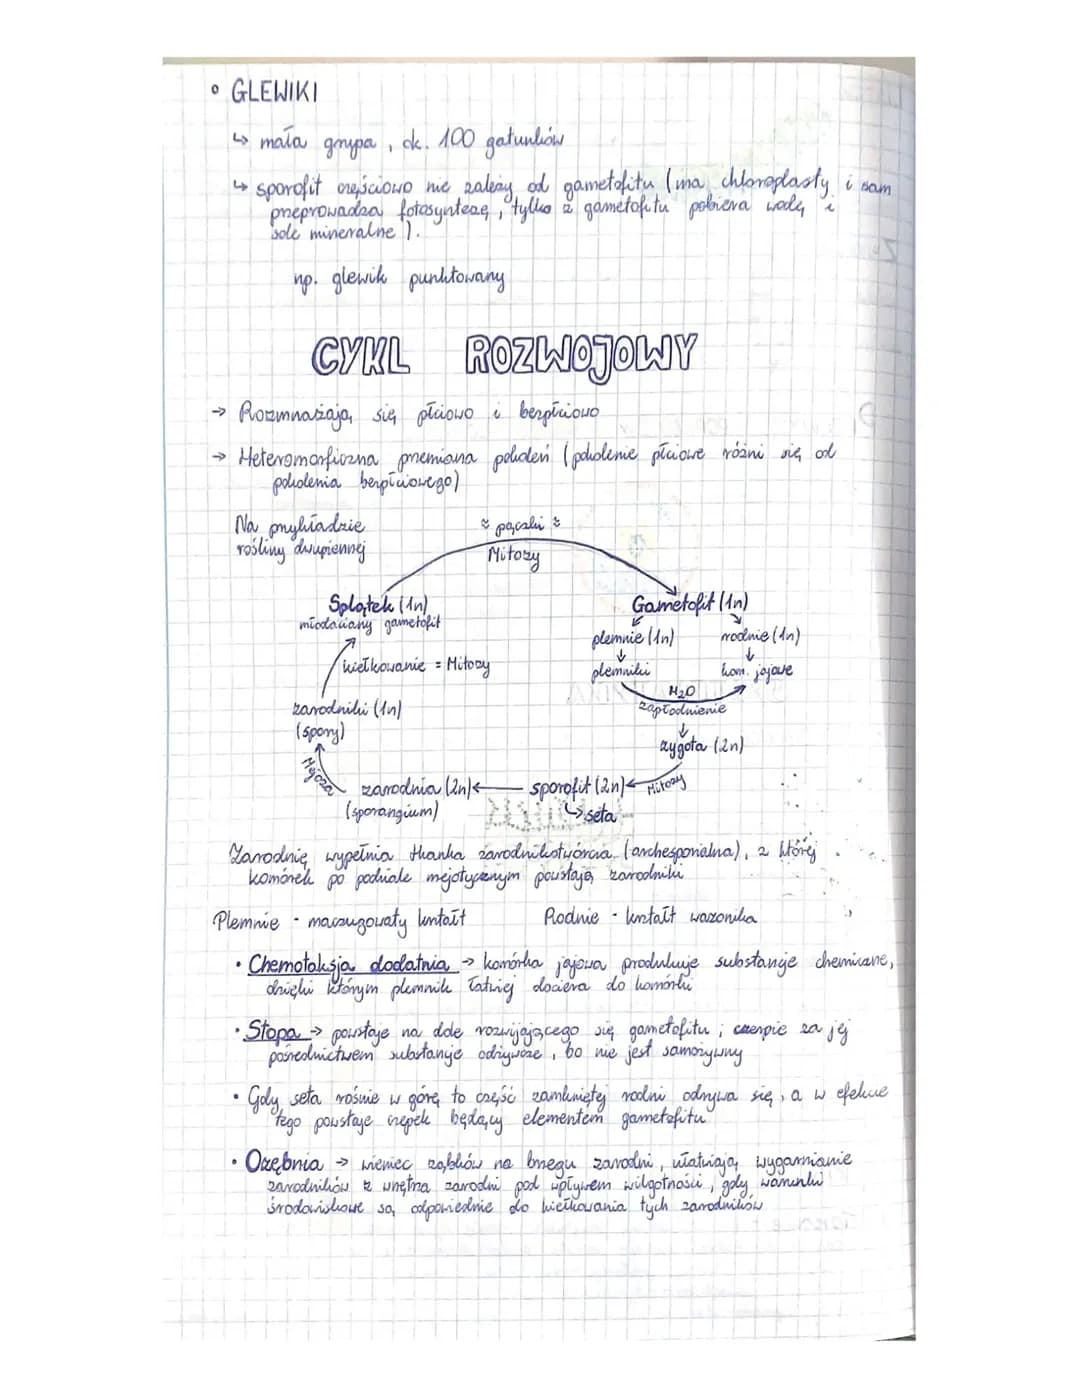 • GLEWIKI
↳ mała grupa, ok. 100 gatunków
↳ sporofit częściowo nie zależy od gametofitu (ma chloroplasty i sam
przeprowadza fotosyntezę, tylko z gametofitu pobiera wodę i
sole mineralne).
np. glewik punktowany
CYKL ROZWOJOWY
→ Rozmnażają się płciowo i bezpłciowo
→ Heteromorficzna przemiana pokoleń (pokolenie płciowe różni się od
pokolenia bezpłciowego)
Na przykładzie
rośliny dwupiennej
~ pączki ~
Mitozy
Splątek (1n)
młodociany gametofit
Gametofit (1n)
plemnie (1n) rodnie (1n)
plemniki kom. jajowe
kiełkowanie = Mitozy
H₂O
zapłodnienie
zarodniki (1n)
(spory)
zygota (2n)
Mejoza
zarodnia (2n) ← sporofit (2n) ← Mitozy
(sporangium) ↳ seta
Zarodnię wypełnia tkanka zarodnikotwórcza (archesporialna), z której
komórek po podziale mejotycznym powstają zarodniki
Plemnie - maczugowaty kształt Rodnie - kształt wazonika
• Chemotaksja dodatnia → komórka jajowa produkuje substancje chemiczne,
dzięki którym plemnik łatwiej dociera do komórki
• Stopa → powstaje na dole rozwijającego się gametofitu; czerpie za jej
pośrednictwem substancje odżywcze, bo nie jest samożywny
• Gdy seta rośnie w górę to część zamkniętej rodni odrywa się, a w efekcie
tego powstaje czepek będący elementem gametofitu
• Ozębnia → wieniec ząbków na brzegu zarodni, ułatwiają wygarnianie
zarodników z wnętrza zarodni pod wpływem wilgotności, gdy warunki
środowiskowe są odpowiednie do kiełkowania tych zarodników